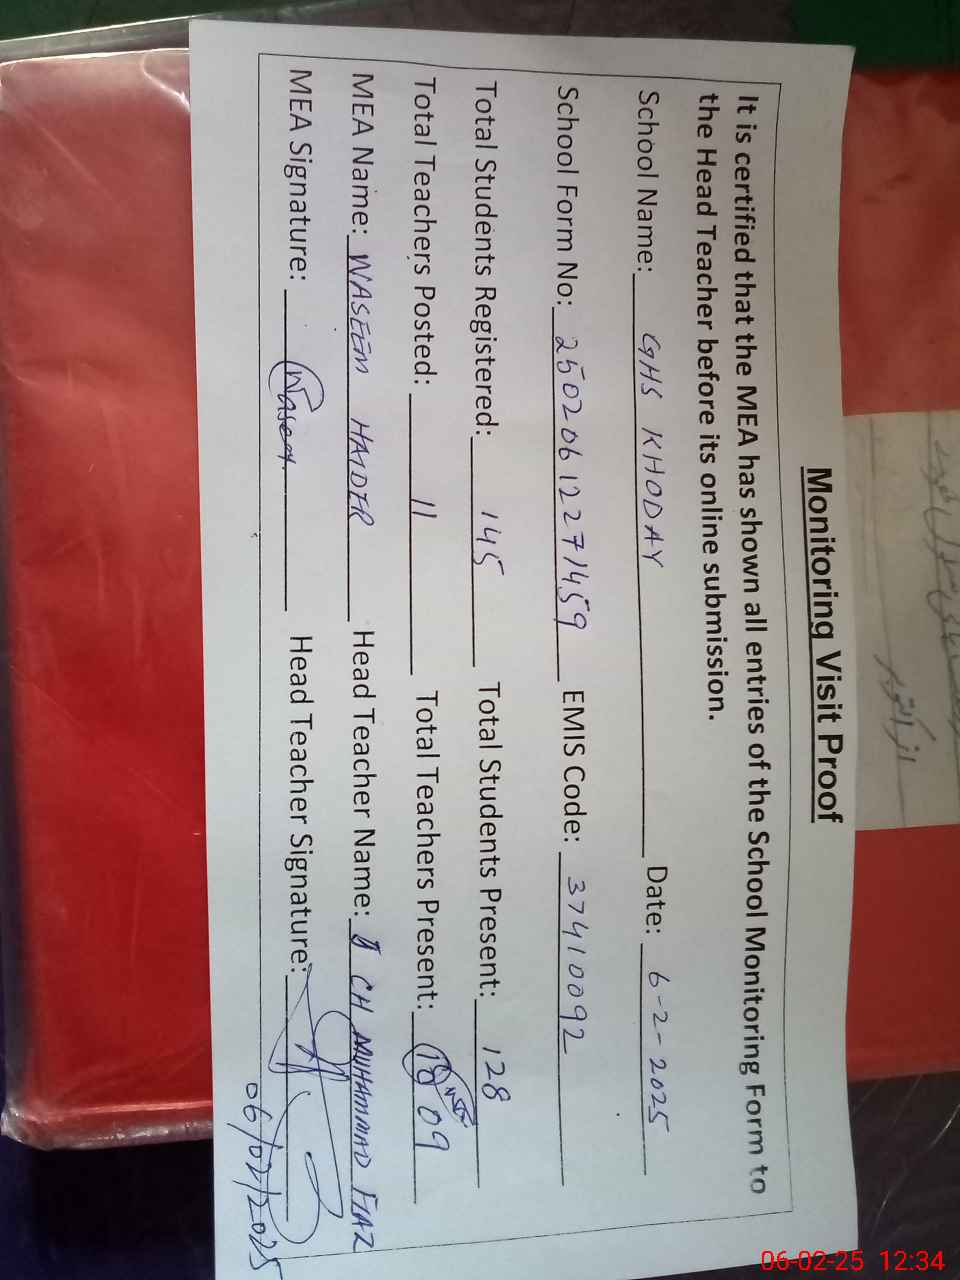 Monitoring Visit Proof
It is certified that the MEA has shown all entries of the School Monitoring Form to
the Head Teacher before its online submission.
School Name: GHS KHODAY Date: 6-2-2025
School Form No: 25020612271459 EMIS Code: 37410092
Total Students Registered: 145 Total Students Present: 128
Total Teachers Posted: 11 Total Teachers Present: 09
MEA Name: WASEEM HAIDER Head Teacher Name: CH MUHAMMAD FIAZ
MEA Signature: Waseem Head Teacher Signature:
06/02/2025
06-02-25 12:34